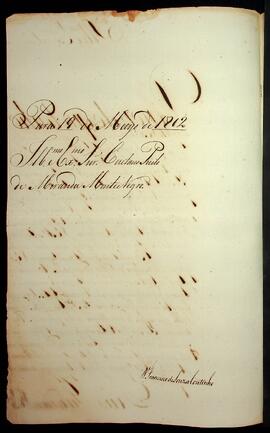 Pará 19 de Mayo de 1812
Illmo. Exmo. Snr. Caetano Pinto
de Miranda Montenegro.
D. Francisco de Souza Coutinho